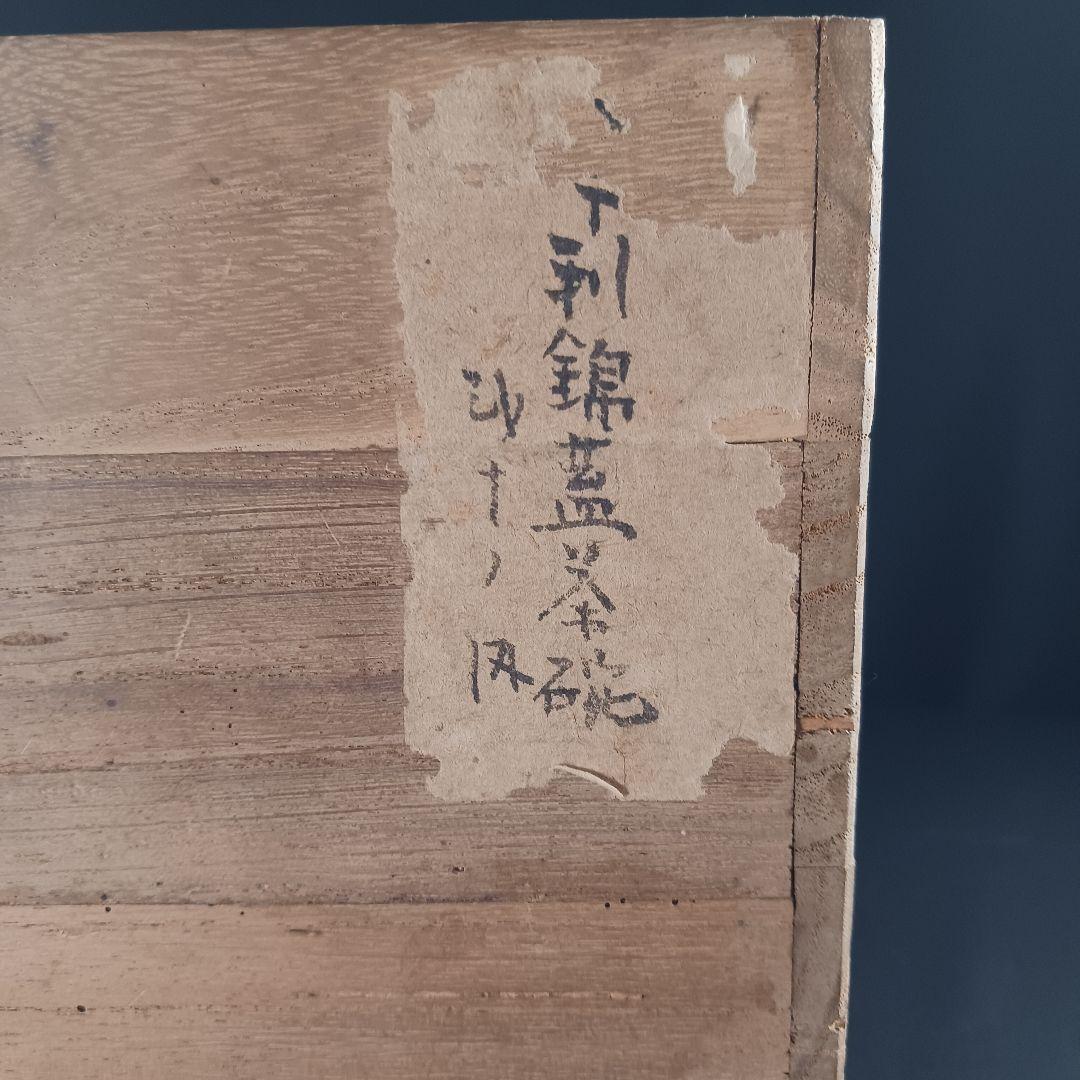 利錦蓋茶碗
弐十ノ内